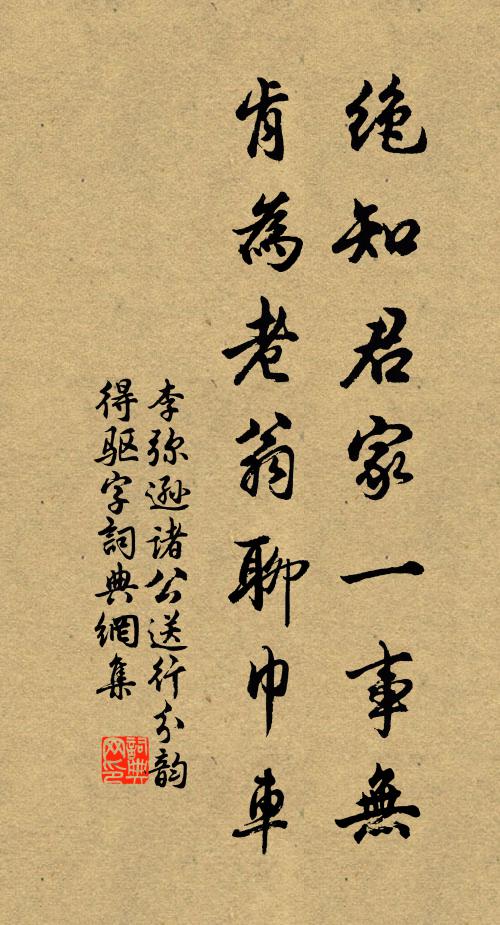 绝知君家一事無
肯為老翁聊巾車
李弥遜諸公送行分韵
得驱字詞典網集
詞典
网印